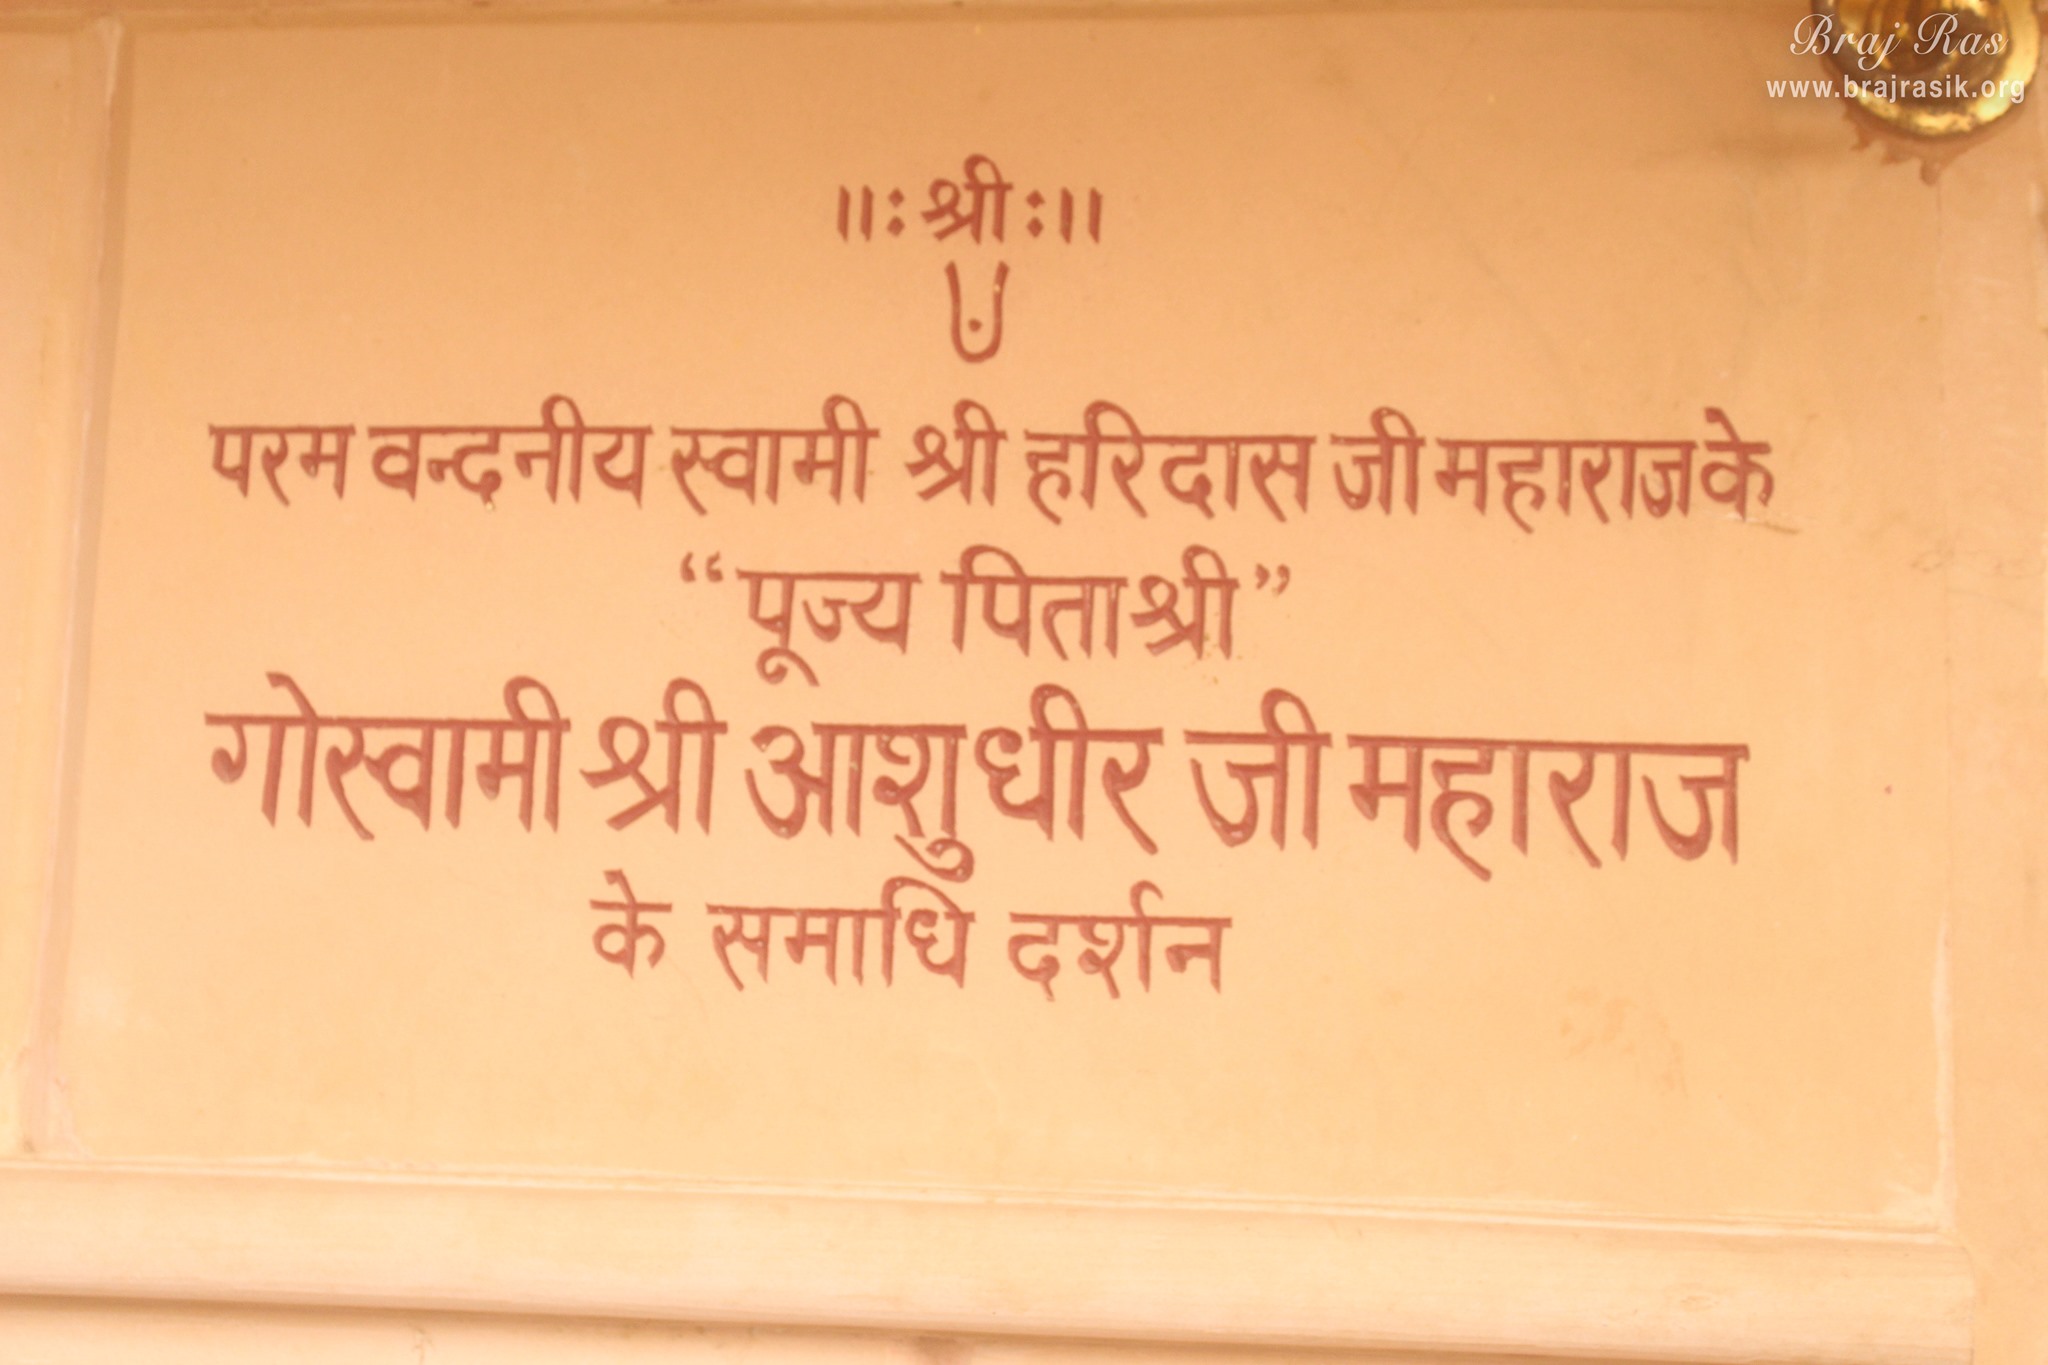 Braj Ras
www.brajrasik.org
।।: श्री :।।
परम वन्दनीय स्वामी श्री हरिदास जी महाराज के
“पूज्य पिताश्री”
गोस्वामी श्री आशुधीर जी महाराज
के समाधि दर्शन